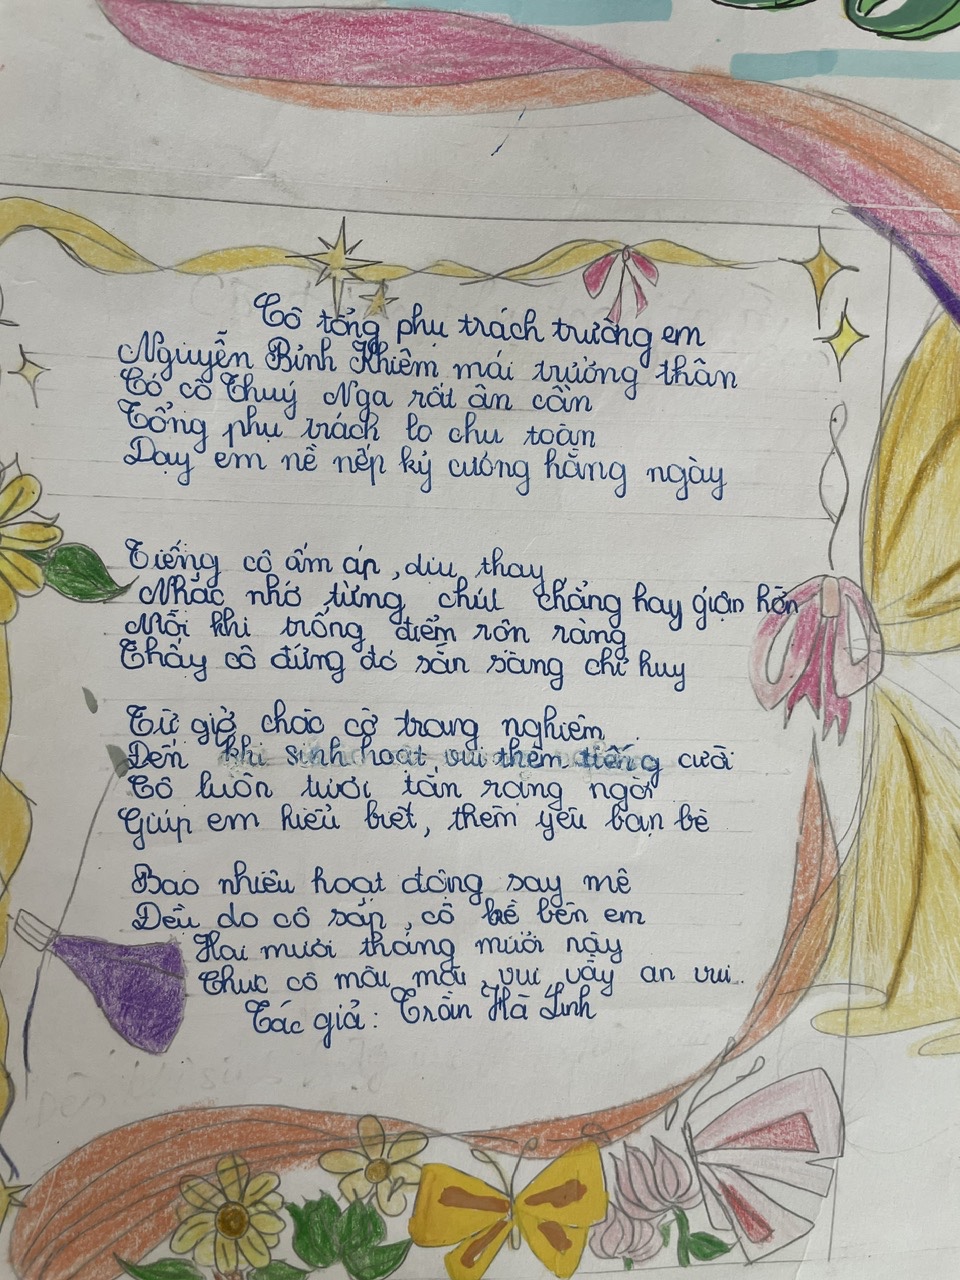 Cô tổng phụ trách trường em
Nguyễn Bỉnh Khiêm mái trường thân
Có cô Thuý Nga rất ân cần
Tổng phụ trách lo chu toàn
Dạy em nề nếp kỷ cương hằng ngày
Tiếng cô ấm áp, dịu thay
Nhắc nhở từng chút chẳng hay giận hờn
Mỗi khi trống điểm rộn ràng
Thấy cô đứng đó sẵn sàng chỉ huy
Từ giờ chào cờ trang nghiêm
Đến khi sinh hoạt vui thêm tiếng cười
Cô luôn tươi tắn rạng ngời
Giúp em hiểu biết, thêm yêu bạn bè
Bao nhiêu hoạt động say mê
Đều do cô sắp, cô kề bên em
Hai mươi tháng mười này
Chúc cô mãi mãi vui vầy an vui.
Tác giả: Trần Hà Linh